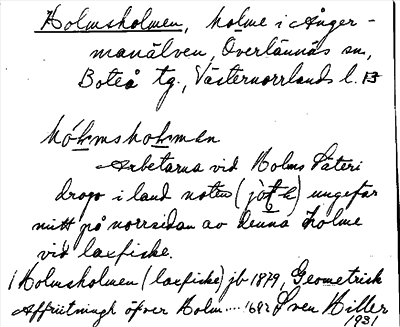 Holmsholmen, holme i Ånger-
manälven, Överlännäs sn,
Boteå tg., Västernorrlands l.
hóhmshohman
Arbetarna vid Holms Säteri
drogo i land noten ungefär
mitt på norrsidan av denna holme
vid laxfiske.
Holmsholmen (laxfiske) jb 1879, Geometrisk
Affritningh öfver Holm .... 169? Sven Hiller
1931